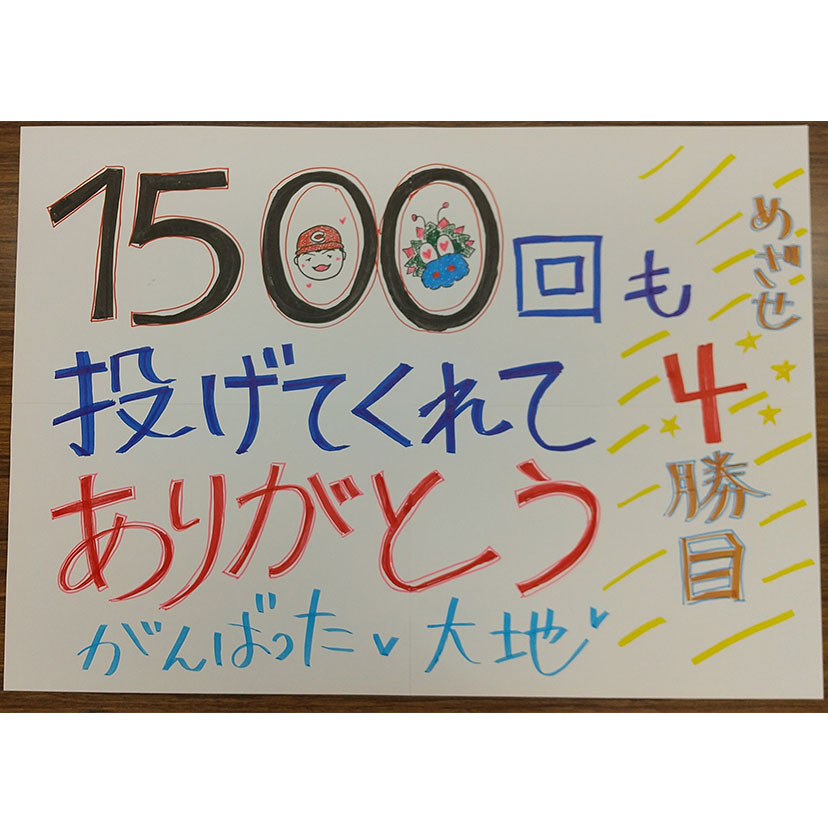 1500回も
投げてくれて
ありがとう
がんばった 大地
めざせ
4
勝目
C